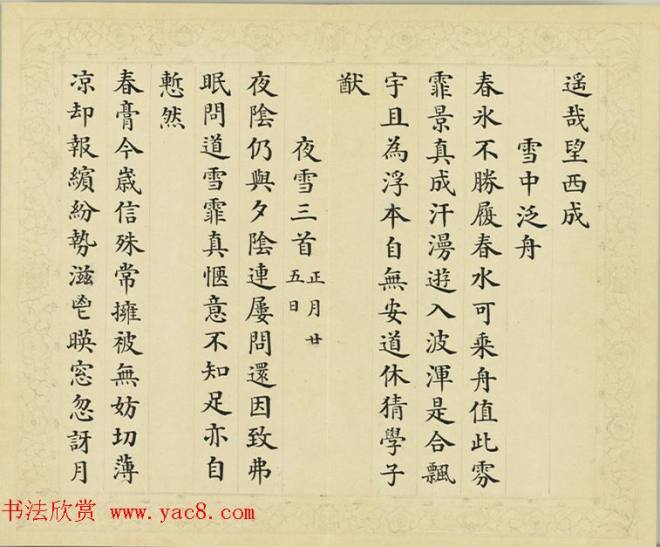 遥哉望西成
雪中泛舟
春氷不勝履春水可乘舟值此雰
霏景真成汗漫遊入波渾是合飄
宇且為浮本自無安道休猜學子
猷
夜雪三首 正月廿五日
夜陰仍與夕陰連屢問還因致弗
眠問道雪霏真愜意不知足亦自
慙然
春膏今歲信殊常擁被無妨切薄
凉却報繽紛勢滋鬯暎窓忽訝月
书法欣赏 www.yac8.com